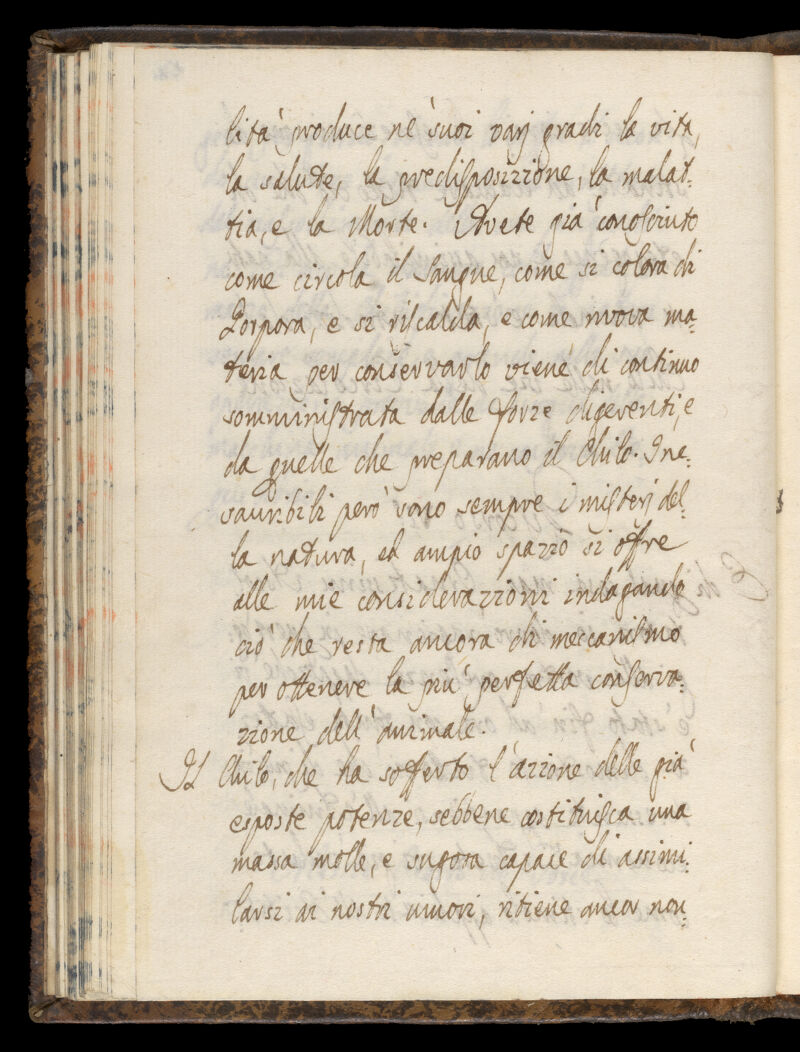 lità produce ne' suoi varj gradi la vita,
la salute, la predisposizione, la malat:
tia, e la Morte. Avete già conosciuto
come circola il Sangue, come si colora di
Porpora, e si riscalda, e come nuova ma:
teria per conservarlo viene di continuo
somministrata dalle forze digerenti, e
da quelle che preparano il Chilo. Ine:
sauribili però sono sempre i misterj del:
la natura, ed ampio spazio si offre
alle mie considerazioni indagando
ciò che resta ancora di meccanismo
per ottenere la più perfetta conserva:
zione dell'animale.
Il Chilo, che ha sofferto l'azione delle già
esposte potenze, sebbene costituisca una
massa molle, e sugosa capace di assimi:
larsi ai nostri umori, ritiene ancor non: